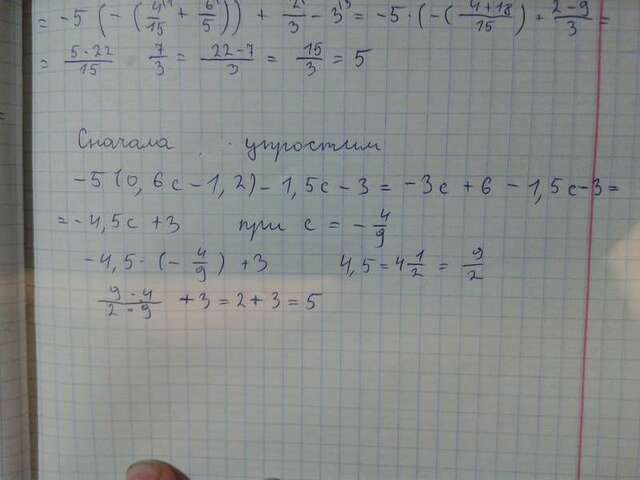 = -5 (-(4/15 + 6/5)) + 2/3 - 3 = -5 · (-(4+18/15) + 2-9/3 =
= 5·22/15 7/3 = 22-7/3 = 15/3 = 5
Сначала упростим
-5(0,6c - 1,2) - 1,5c - 3 = -3c + 6 - 1,5c - 3 =
= -4,5c + 3 при c = -4/9
-4,5 · (-4/9) + 3 4,5 = 4 1/2 = 9/2
9·4/2·9 + 3 = 2 + 3 = 5